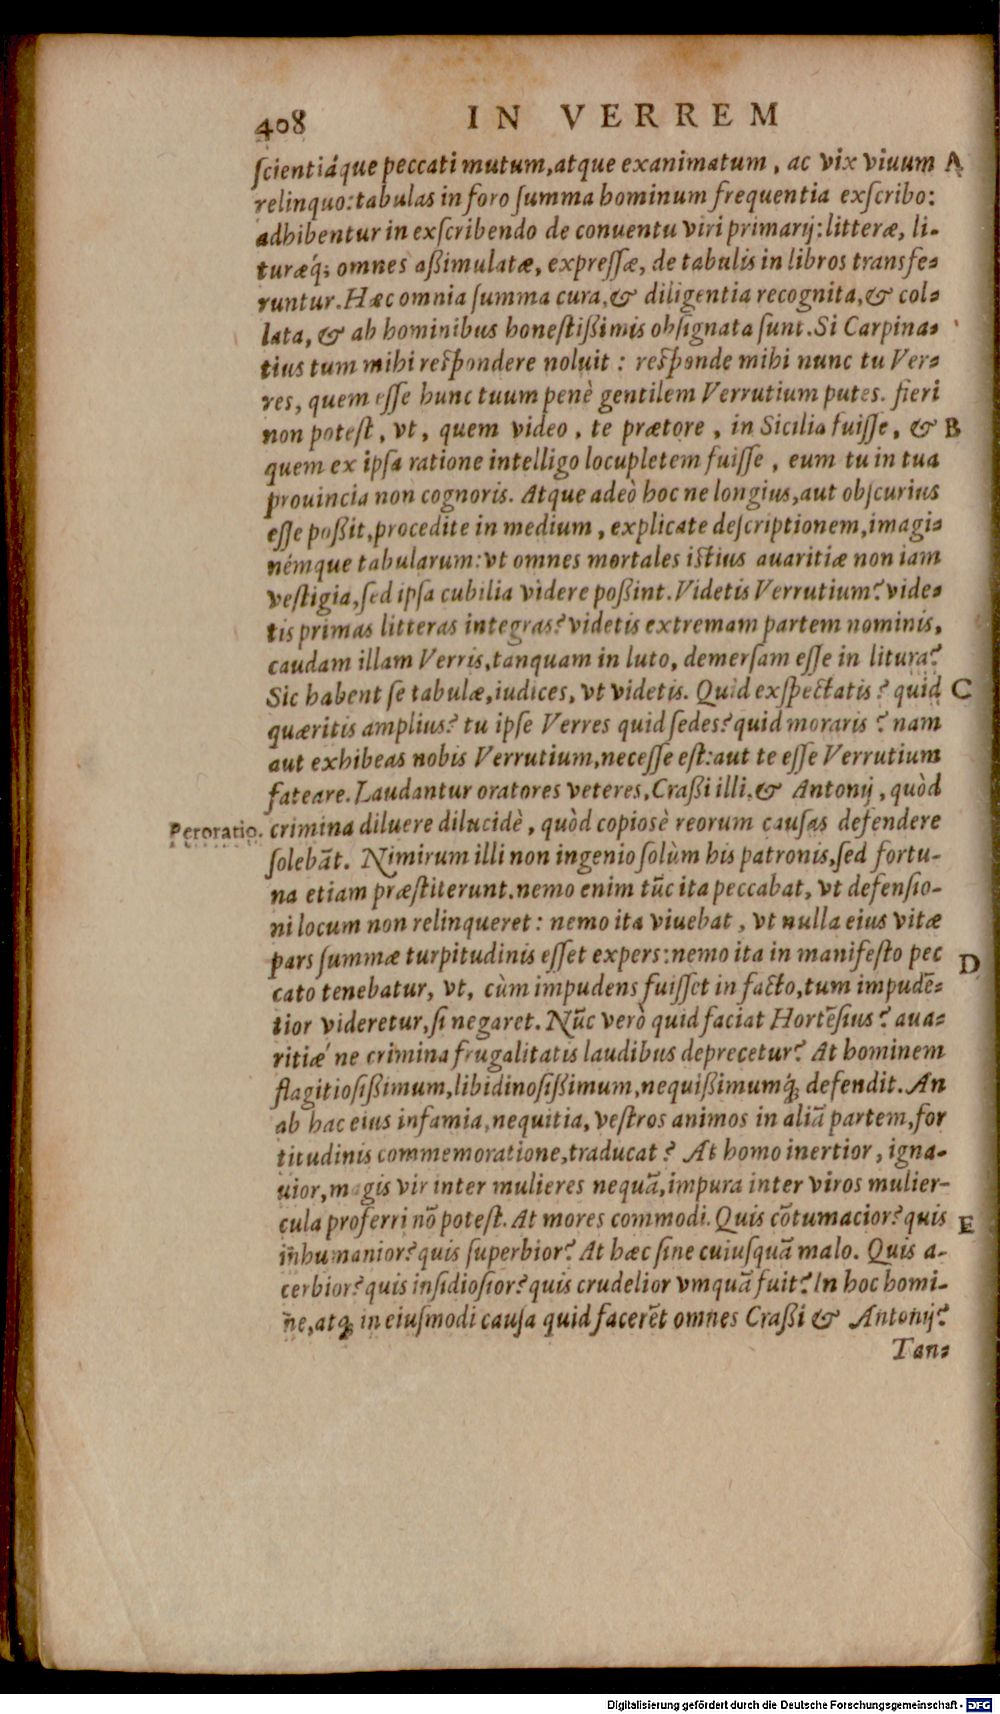 408 IN VERREM
ſcientiáque peccati mutum, atque exanimatum, ac vix viuum A
relinquo: tabulas in foro ſumma hominum frequentia exſcribo:
adhibentur in exſcribendo de conuentu viri primarij: litteræ, li-
turæq́; omnes aßimulatæ, expreſſæ, de tabulis in libros transfe-
runtur. Hæc omnia ſumma cura, & diligentia recognita, & col-
lata, & ab hominibus honeſtißimis obſignata ſunt. Si Carpina-
tius tum mihi reſpondere noluit: reſponde mihi nunc tu Ver-
res, quem eſſe hunc tuum penè gentilem Verrutium putes. fieri
non poteſt, vt, quem video, te prætore, in Sicilia fuiſſe, & B
quem ex ipſa ratione intelligo locupletem fuiſſe, eum tu in tua
prouincia non cognoris. Atque adeò hoc ne longius, aut obſcurius
eſſe poßit, procedite in medium, explicate deſcriptionem, imagi-
némque tabularum: vt omnes mortales iſtius auaritiæ non iam
veſtigia, ſed ipſa cubilia videre poßint. Videtis Verrutium? vide-
tis primas litteras integras? videtis extremam partem nominis,
caudam illam Verris, tanquam in luto, demerſam eſſe in litura?
Sic habent ſe tabulæ, iudices, vt videtis. Quid exſpectatis? quid C
quæritis amplius? tu ipſe Verres quid ſedes? quid moraris? nam
aut exhibeas nobis Verrutium, neceſſe eſt: aut te eſſe Verrutium
fateare. Laudantur oratores veteres, Craßi illi, & Antonij, quòd
Peroratio. crimina diluere dilucidè, quòd copiosè reorum cauſas defendere
ſolebāt. Nimirum illi non ingenio ſolùm his patronis, ſed fortu-
na etiam præſtiterunt. nemo enim tūc ita peccabat, vt defenſio-
ni locum non relinqueret: nemo ita viuebat, vt nulla eius vitæ
pars ſummæ turpitudinis eſſet expers: nemo ita in manifeſto pec D
cato tenebatur, vt, cùm impudens fuiſſet in facto, tum impudē-
tior videretur, ſi negaret. Nūc verò quid faciat Hortēſius? aua-
ritiæ ne crimina frugalitatis laudibus deprecetur? At hominem
flagitioſißimum, libidinoſißimum, nequißimumq́; defendit. An
ab hac eius infamia, nequitia, veſtros animos in aliā partem, for
titudinis commemoratione, traducat? At homo inertior, igna-
uior, magis vir inter mulieres nequā, impura inter viros mulier-
cula proferri nō poteſt. At mores commodi. Quis cōtumacior? quis E
inhumanior? quis ſuperbior? At hæc ſine cuiuſquā malo. Quis a-
cerbior? quis inſidioſior? quis crudelior vmquā fuit? In hoc homi-
ne, atq; in eiuſmodi cauſa quid facerēt omnes Craßi & Antonij?
Tan-
Digitalisierung gefördert durch die Deutsche Forschungsgemeinschaft - DFG